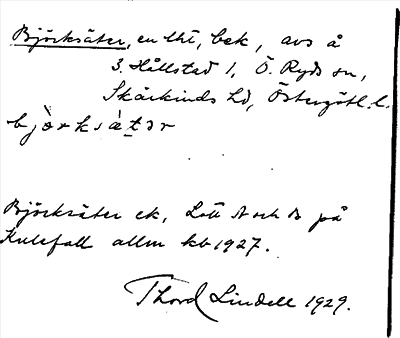 Björksäter, en lht, bek, avs å
3. Hållstad 1, Ö. Ryds sn,
Skärkinds hd, Östergötl. l.
bjö̀rksà̱tər
Björksäter ek, Lott A och B på
Kulefall allm kb 1927.
Thord Lindell 1929.